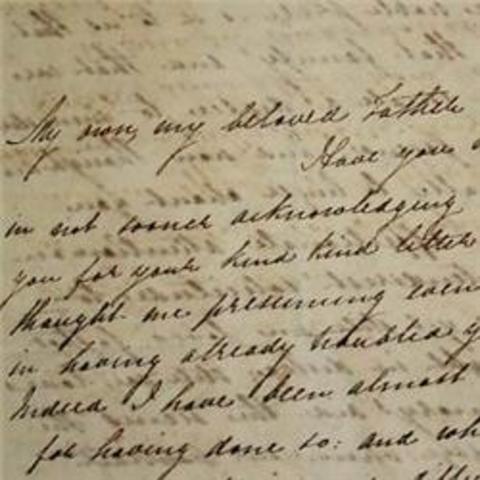 My own, my beloved Father
Have you
in not sooner acknowledging
you for your kind kind letter
thought me presuming even
in having already troubled y
Indeed I have been almost
for having done so: and wh